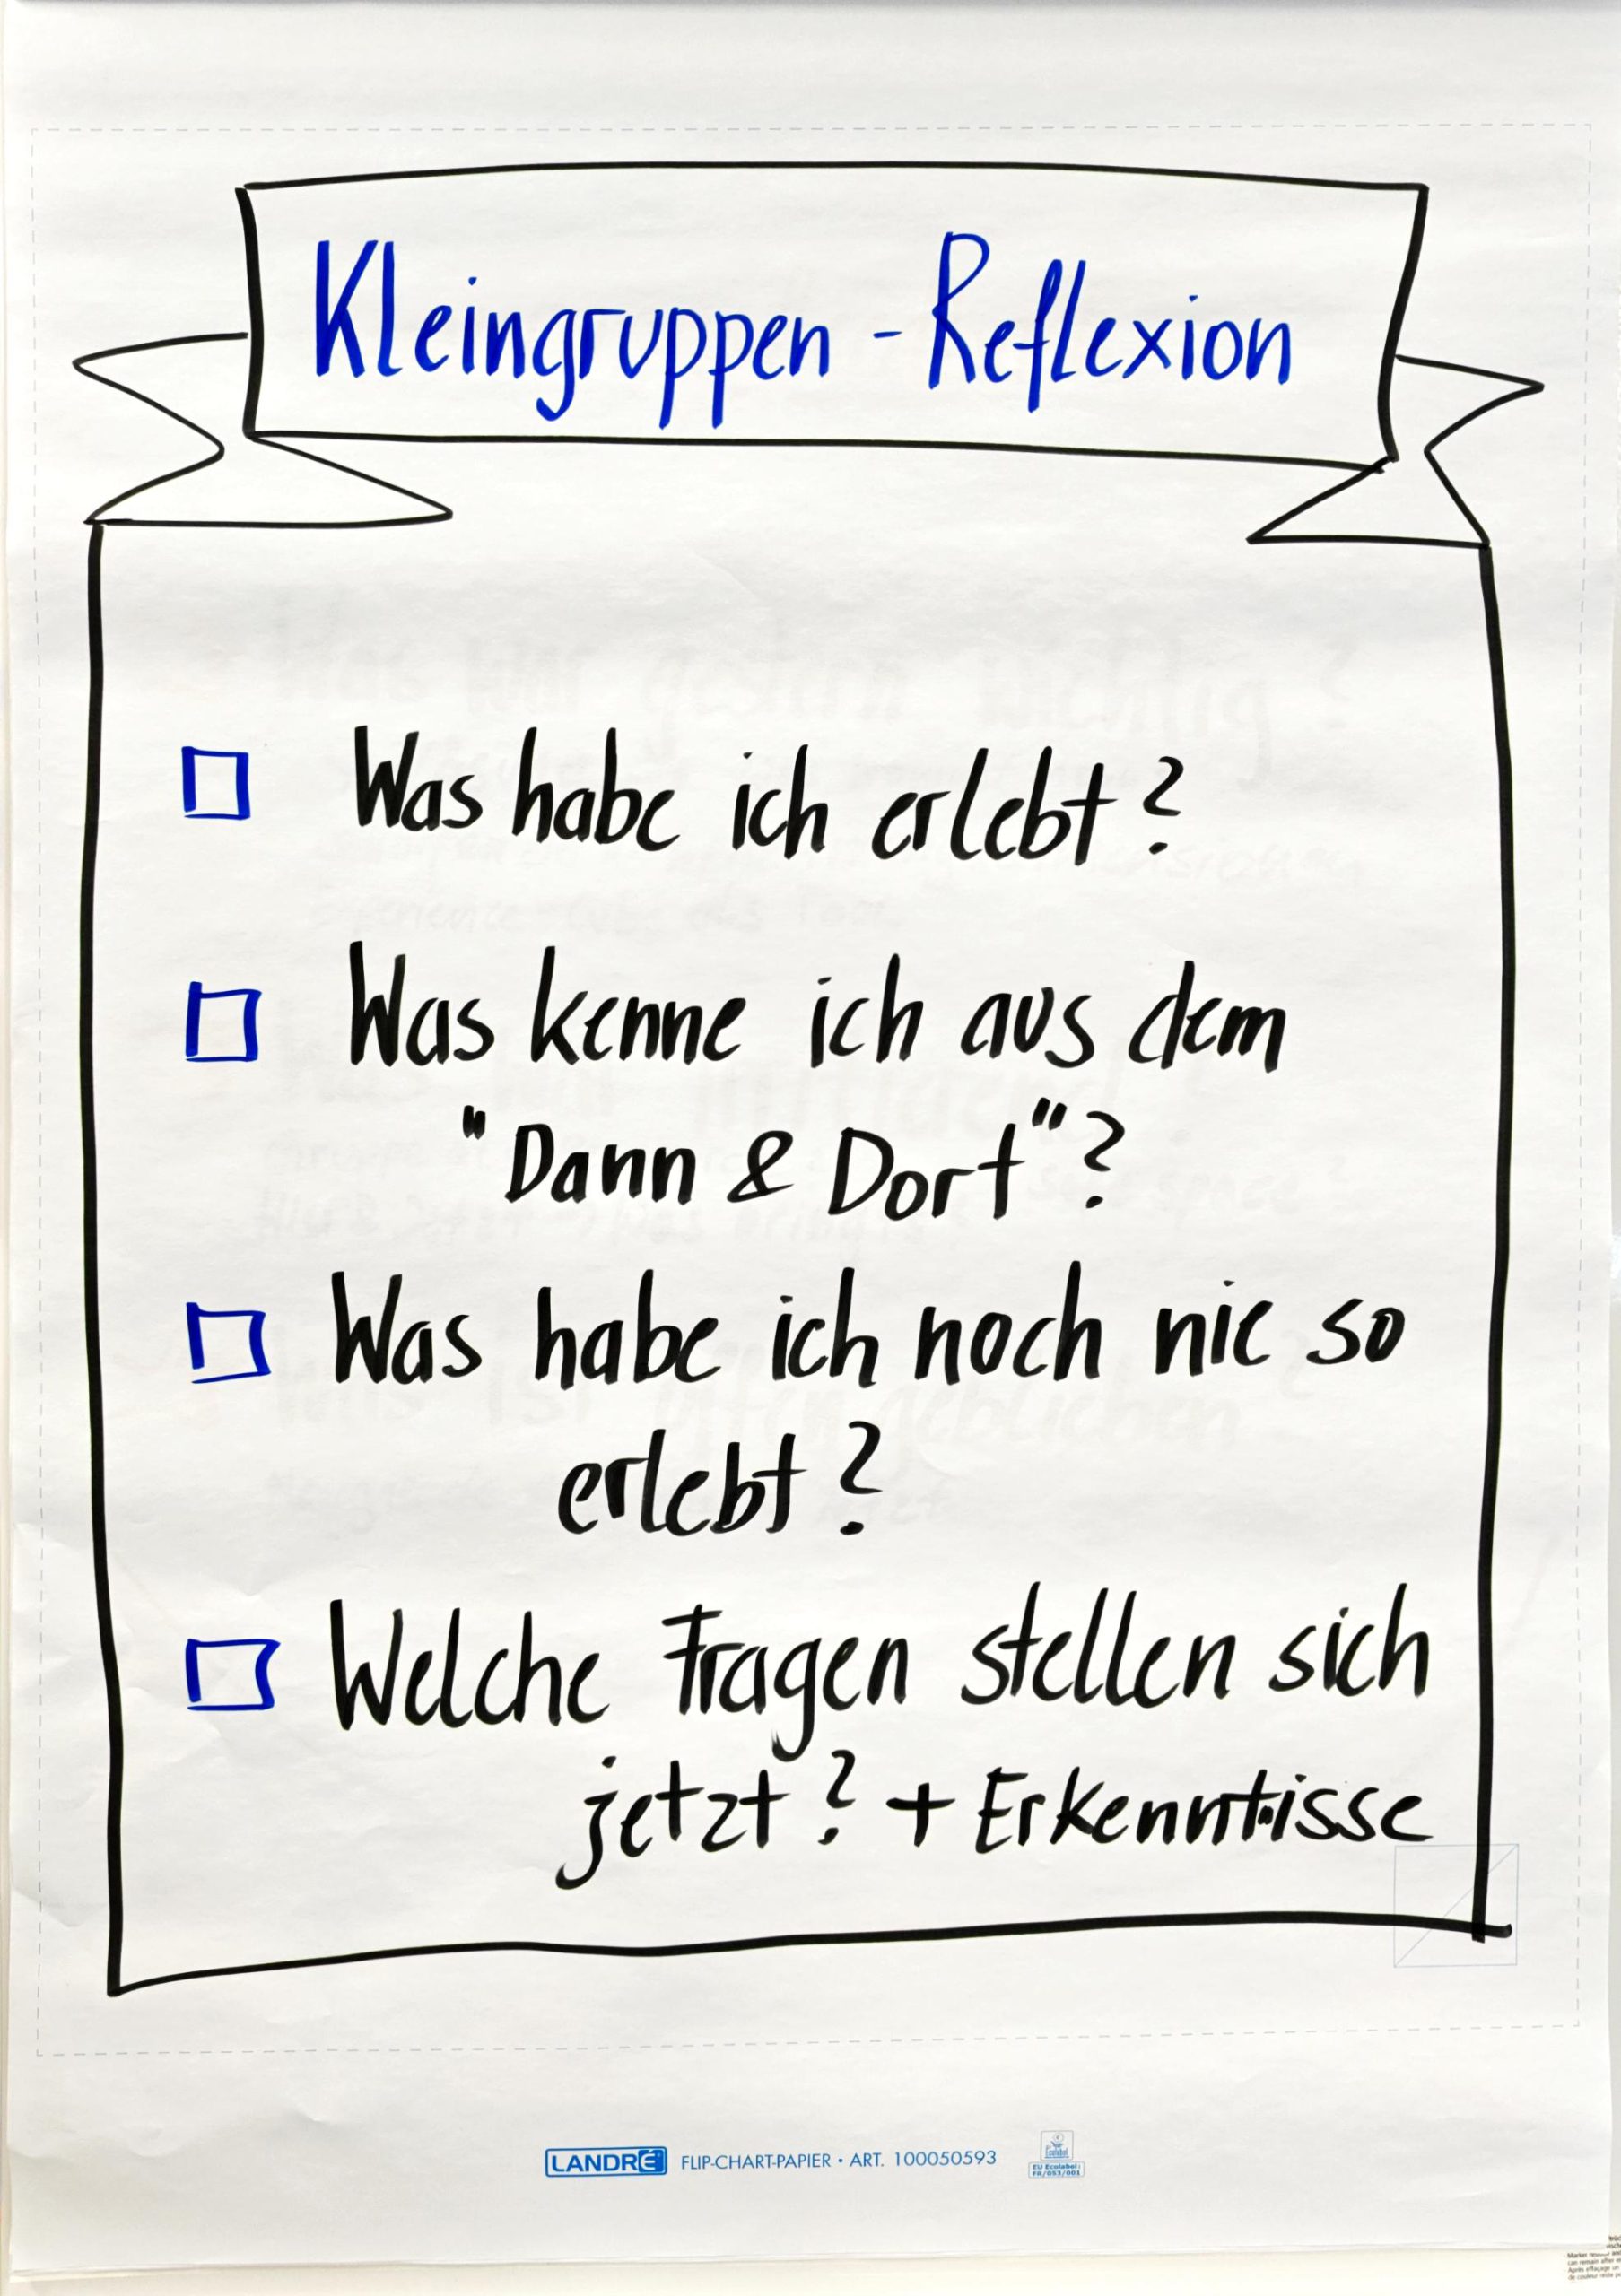 Kleingruppen - Reflexion
Was habe ich erlebt?
Was kenne ich aus dem
"Dann & Dort"?
Was habe ich noch nie so
erlebt?
Welche Fragen stellen sich
jetzt? + Erkenntnisse
LANDRÉ FLIP-CHART-PAPIER • ART. 100050593
Ecolabel
EU Ecolabel:
FR/053/001